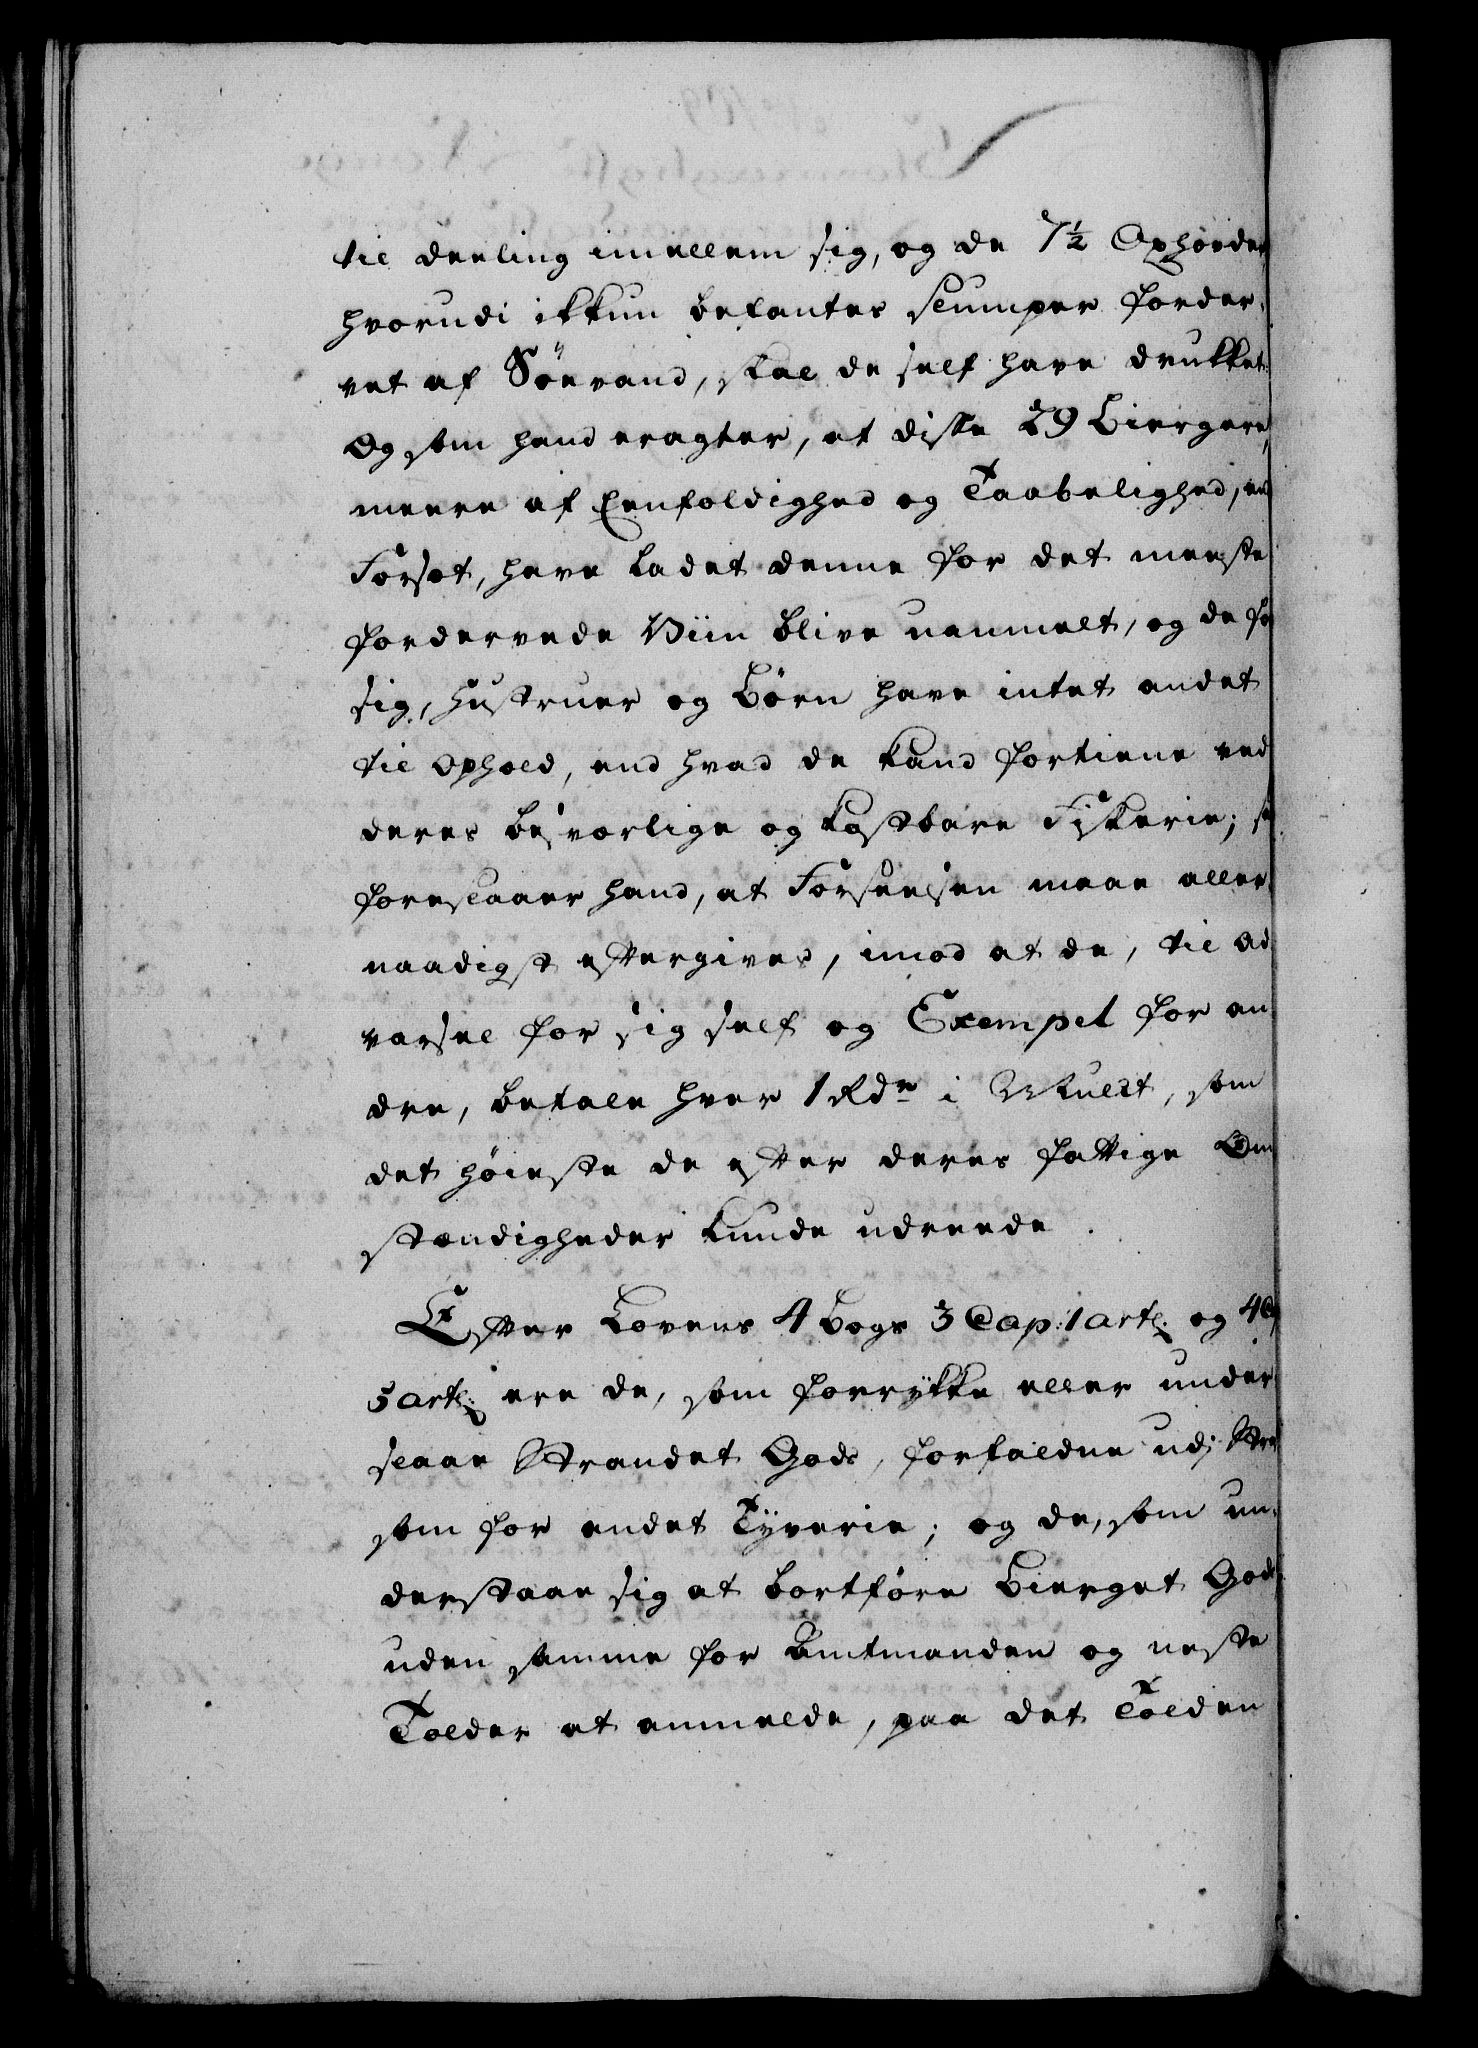 til deeling imellem sig, og de 7½ Oxhoveder
hvorudi ikkun befantes slumper forder-
vet af Söevand, skal de self have drukket:
Og som hand eragter, at disse 29 Biergere,
meere af Eenfoldighed og Taabelighed, end
Forsæt, have ladet denne for det meeste
fordervede Viin blive uanmelt, og de for
sig, Hustruer og Börn have intet andet
til Ophold, end hvad de kand fortiene ved
deres besværlige og kostbare Fiskerie; saa
foreslaaer hand, at Forseelsen maae aller-
naadigst eftergives, imod at de, til Ad-
varsel for sig self og Exempel for an-
dre, betale hver 1 Rdr i Mulct, som
det höieste de efter deres fattige Om-
stændigheder kunde udreede.
Efter Lovens 4 Bogs 3 Cap: 1 artl: og 4 Cap:
5 artl: ere de, som forrykke eller under-
slaae Strandet Gods, forfaldne udi Straf
som for andet Tyverie; og de, som un-
derstaae sig at bortföre Bierget Gods
uden samme for Amtmanden og neste
Tolder at anmelde, paa det Tolden